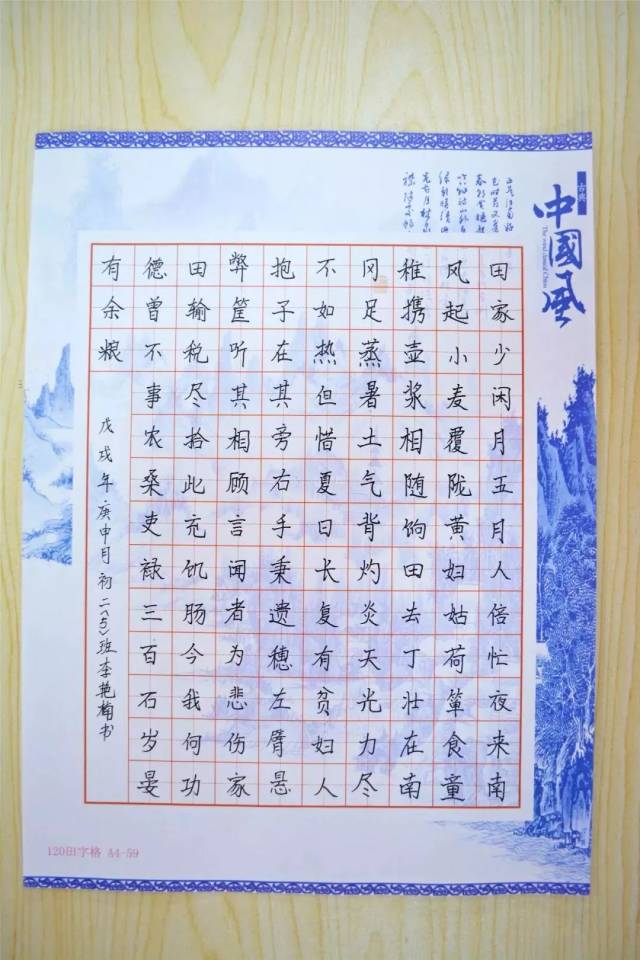 古典
中國风
田家少闲月五月人倍忙夜来南
风起小麦覆陇黄妇姑荷箪食童
稚携壶浆相随饷田去丁壮在南
冈足蒸暑土气背灼炎天光力尽
不如热但惜夏日长复有贫妇人
抱子在其旁右手秉遗穗左臂悬
弊筐听其相顾言闻者为悲伤家
田输税尽拾此充饥肠今我何功
德曾不事农桑吏禄三百石岁晏
有余粮
戊戌年庚申月初二(5)班李艳楠书
120田字格 A4-59